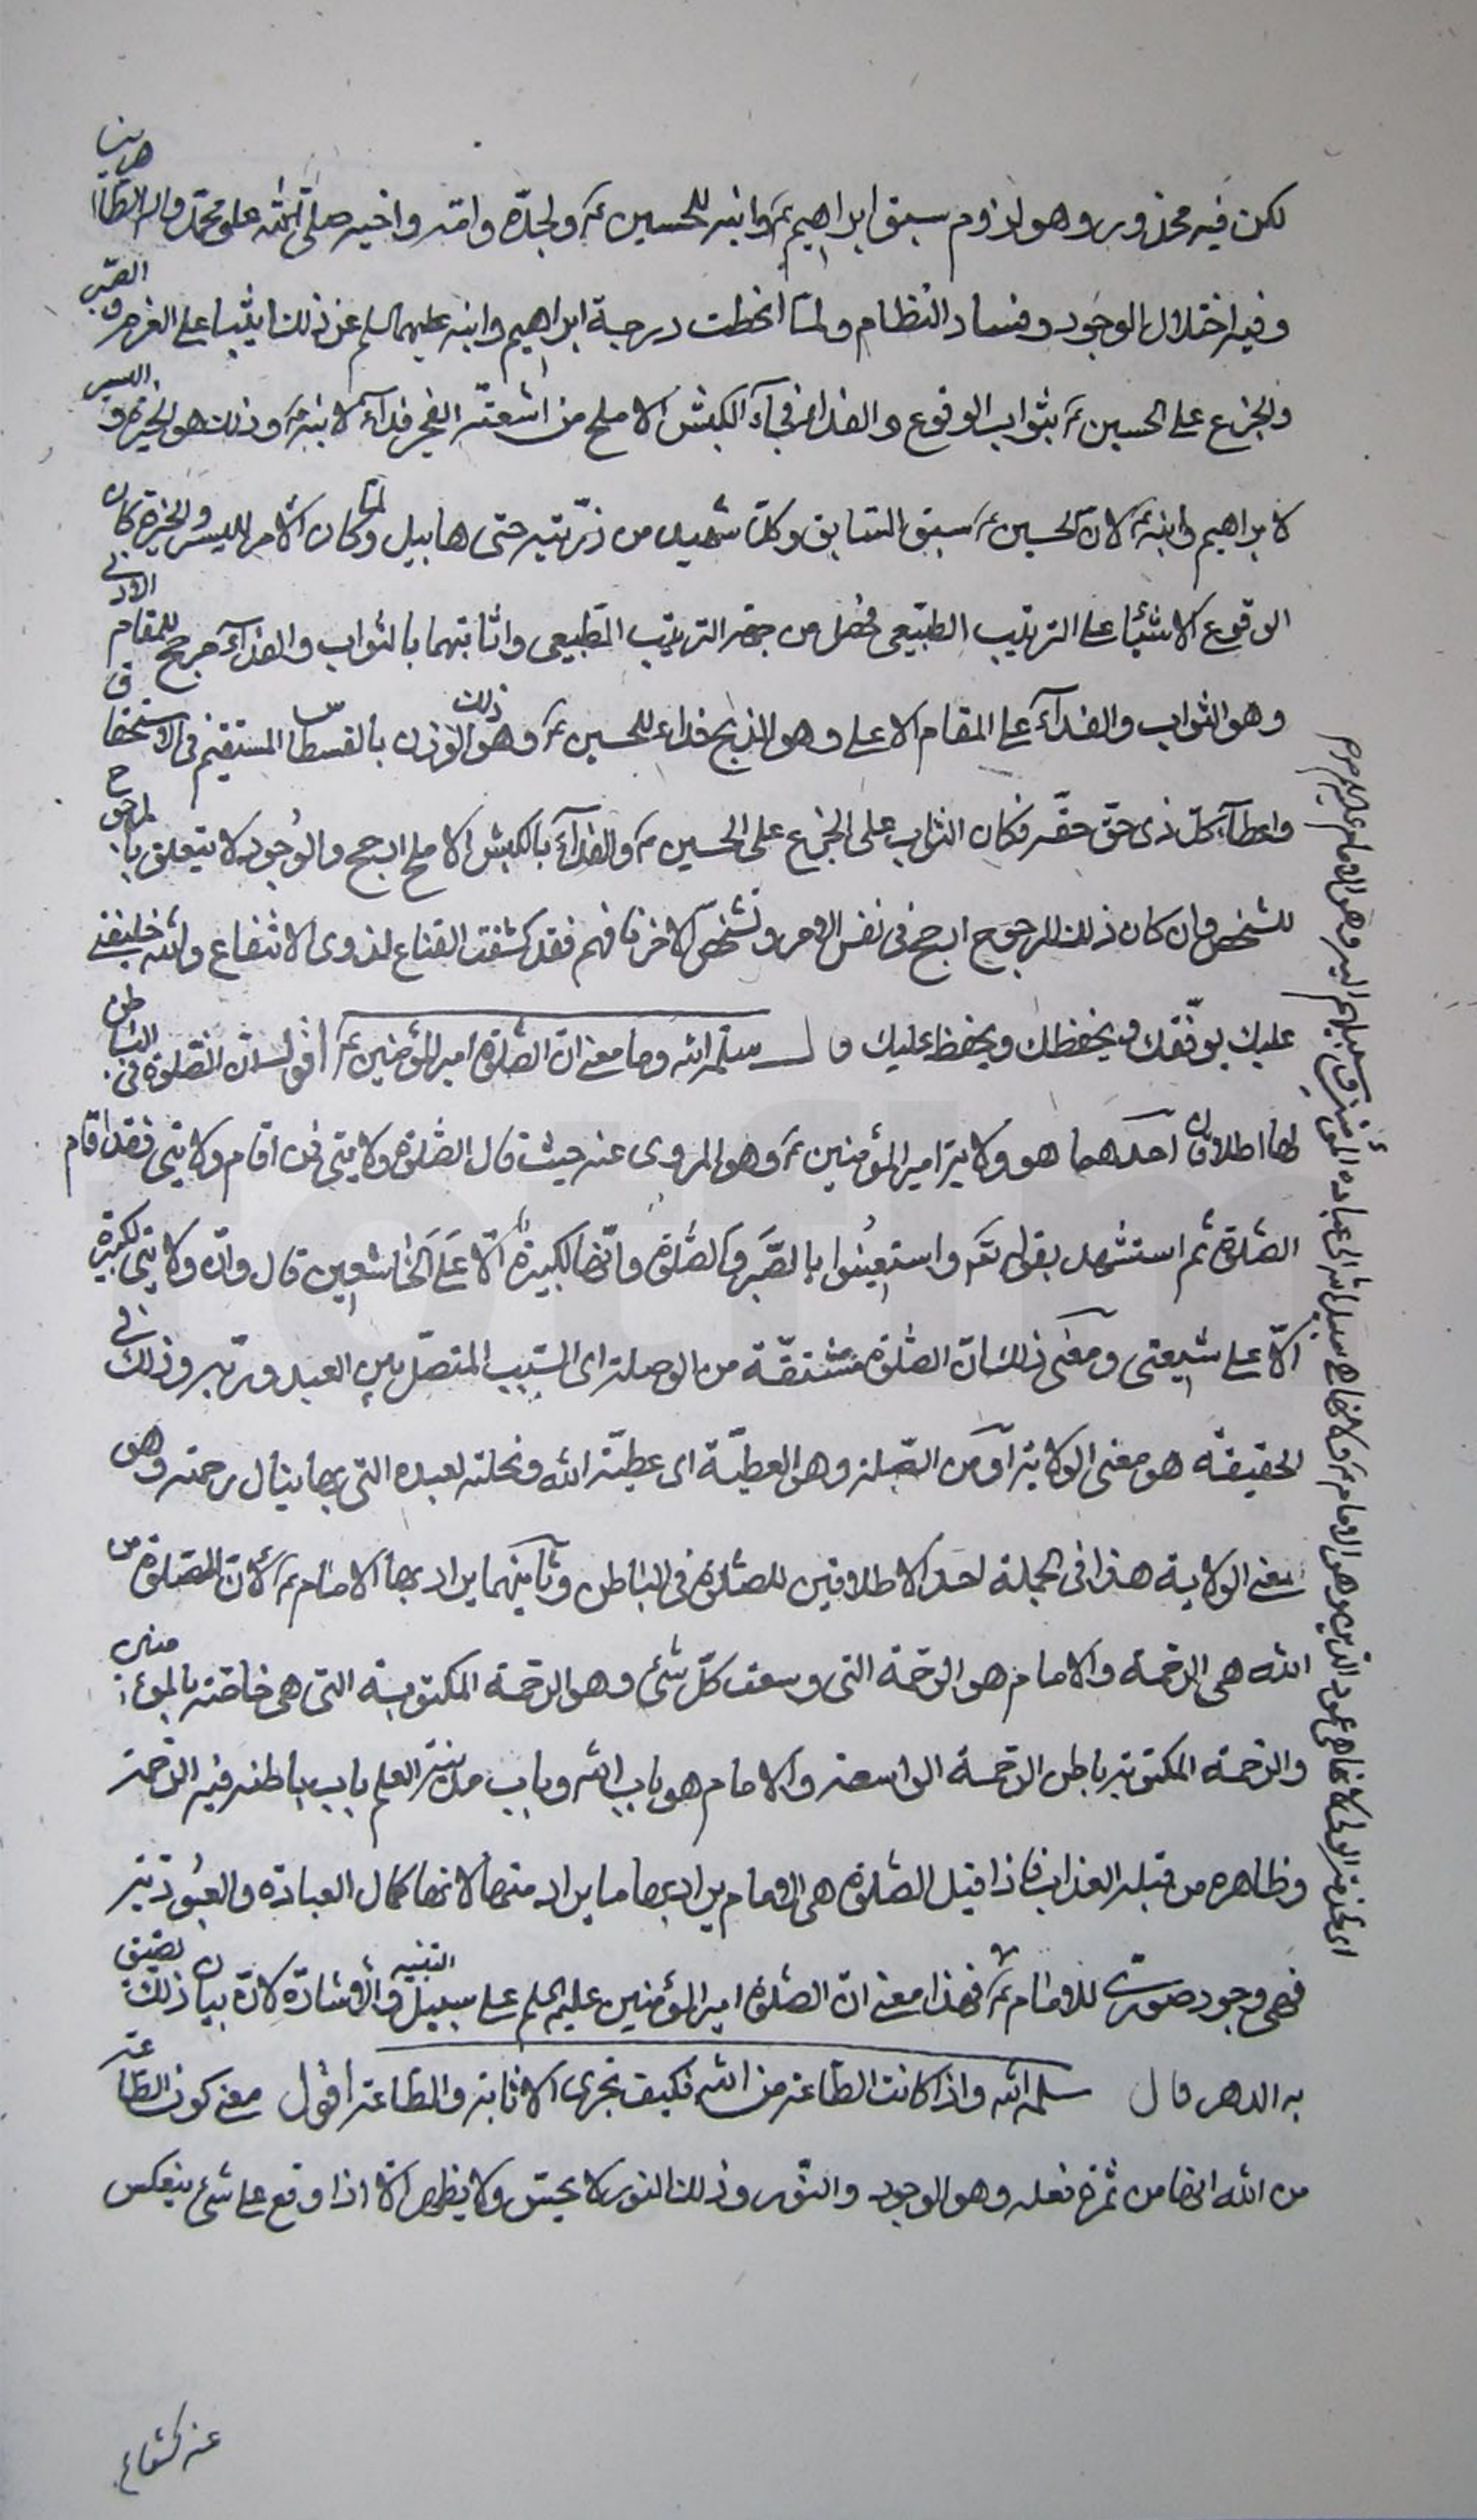 لكن فيه محذور وهو لزوم سبق ابراهيم ع وابنه للحسين ع ولجده وامه واخيه صلى الله على محمد واله الطاهرين
وفيه اختلال الوجود وفساد النظام ولما انحطت درجة ابراهيم وابنه عليهما السلم عن ذلك اثيبا على العزم والصبر
والجزع على الحسين ع بثواب الوقوع والفداء فجآء الكبش الاملح من اشعة الفجر فدآء لابنه ع وذلك هو الخيرة واليسر
لابراهيم وابنه ع لان الحسين ع سبق السابق وكل شهيد من ذريته حتى هابيل ولما كان الامر لليسر والخيرة كان
الوقوع الاشيا على الترتيب الطبيعى من جهة الترتيب الطبيعى واثابتهما بالثواب والفدآء مرجح للمقام الادنى
وهو الثواب والفدآء على المقام الاعلى وهو الذبح فداء للحسين ع وذلك هو الوزن بالقسطاس المستقيم فى الاستحقاق
واعطآء كل ذى حق حقه فكان الثواب على الجزع على الحسين ع والفدآء بالكبش الاملح ارجح والوجود لا يتعلق بالمرجوح
للشخص وان كان ذلك المرجوح ارجح فى نفس الامر وتشخص الاخر فافهم فقد كشفت القناع لذوى الانتفاع والله خليفتى
عليك يوفقك ويحفظك ويحفظ عليك قال سلمه الله وما معنى ان الصلوة امير المؤمنين ع اقول ان الصلوة فى الباطن
لها اطلاقان احدهما هو ولاية امير المؤمنين ع وهو المروى عنه حيث قال الصلوة ولايتى فمن اقام ولايتى فقد اقام
الصلوة ثم استشهد بقوله تع واستعينوا بالصبر والصلوة وانها لكبيرة الا على الخاشعين قال وان ولايتى لكبيرة
الا على شيعتى ومعنى ذلك ان الصلوة مشتقة من الوصلة اى السبب المتصل بين العبد وربه وذلك فى
الحقيقة هو معنى الولاية او من الصلة وهو العطية اى عطية الله ونحلته لعبده التى بها ينال رحمته وهو
معنى الولاية هذا فى الجملة احد الاطلاقين للصلوة فى الباطن وثانيهما يراد بها الامام ع لان الصلوة من
الله هى الرحمة والامام هو الرحمة التى وسعت كل شئ وهو الرحمة المكتوبة التى هى خاصة بالمؤمنين
والرحمة المكتوبة باطن الرحمة الواسعة والامام هو باب الله وباب مدينة العلم باب باطنه فيه الرحمة
وظاهره من قبله العذاب فاذا قيل الصلوة هى الامام يراد بها ما يراد منها لانها كمال العبادة والعبودية
فهى وجود صورى للامام ع فهذا معنى ان الصلوة امير المؤمنين عليه السلم على سبيل التنبيه والاشارة لان بيان ذلك يضيق
به الدهر قال سلمه الله واذا كانت الطاعة من الله فكيف تجرى الاثابة والطاعة اقول معنى كون الطاعة
من الله انها من ثمرة فعله وهو الوجود والنور وذلك النور لا يحس ولا يظهر الا اذا وقع على شئ ينعكس
عنه كشعاع